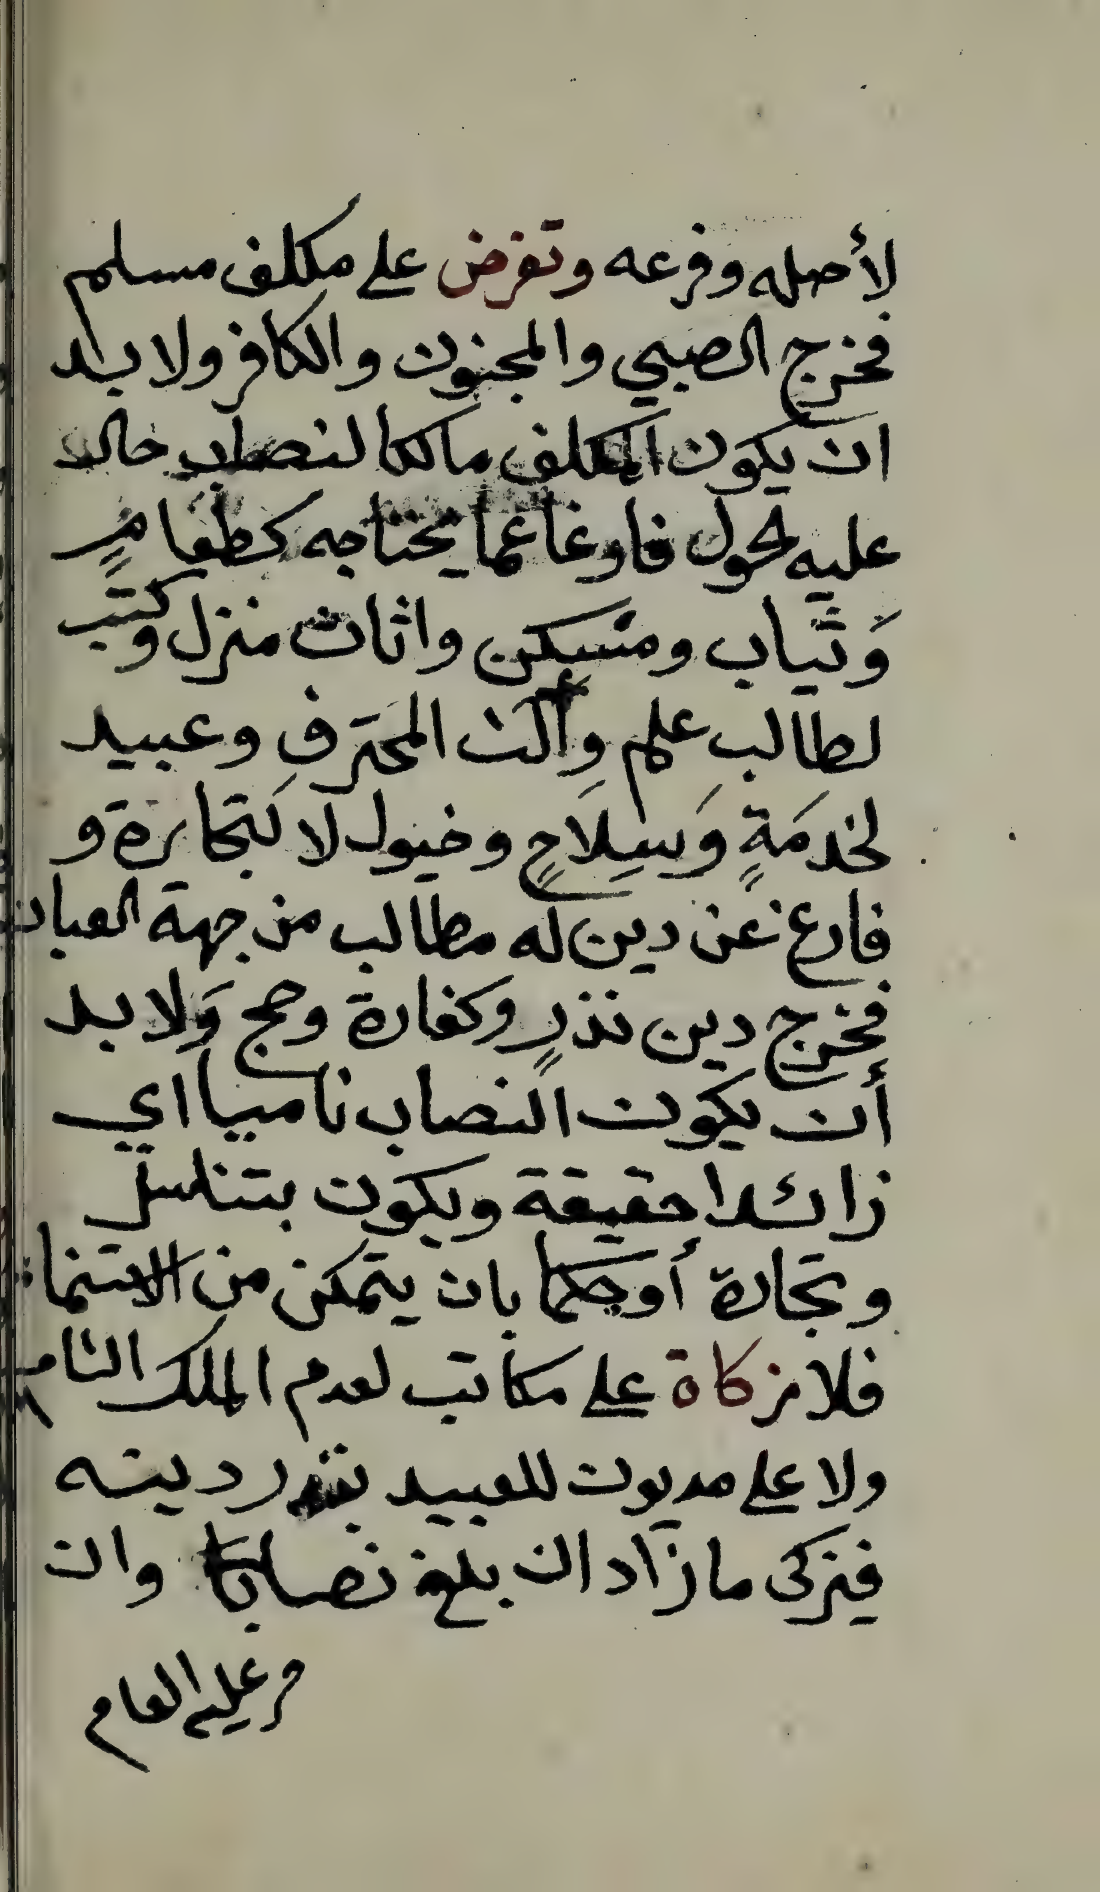 لأصله وفرعه وتفرض على مكلف مسلم
فخرج الصبي والمجنون والكافر ولا بد
ان يكون المكلف مالكا لنصاب حال
عليه لحول فارغا عما يحتاجه كطعامٍ
وَثياب ومسكن واثاث منزل وكتب
لطالب علم وألات المحترف وعبيد
لخدمَةٍ وَسِلَاحٍ وخيول لا لتجارة و
فارغ عن دين له مطالب من جهة العباد
فخرج دين نذرٍ وكفارة وحج وَلا بد
أن يكون النصاب ناميا اي
زائدا حقيقة ويكون بتناسل
وتجارة أو حكما بان يتمكن من الاستنماء
فلا زكاة على مكاتب لعدم الملك التام
ولا على مديون للعبيد بقدر دينه
فيزكى ما زاد ان بلغ نصابا وان
مر عليه العام